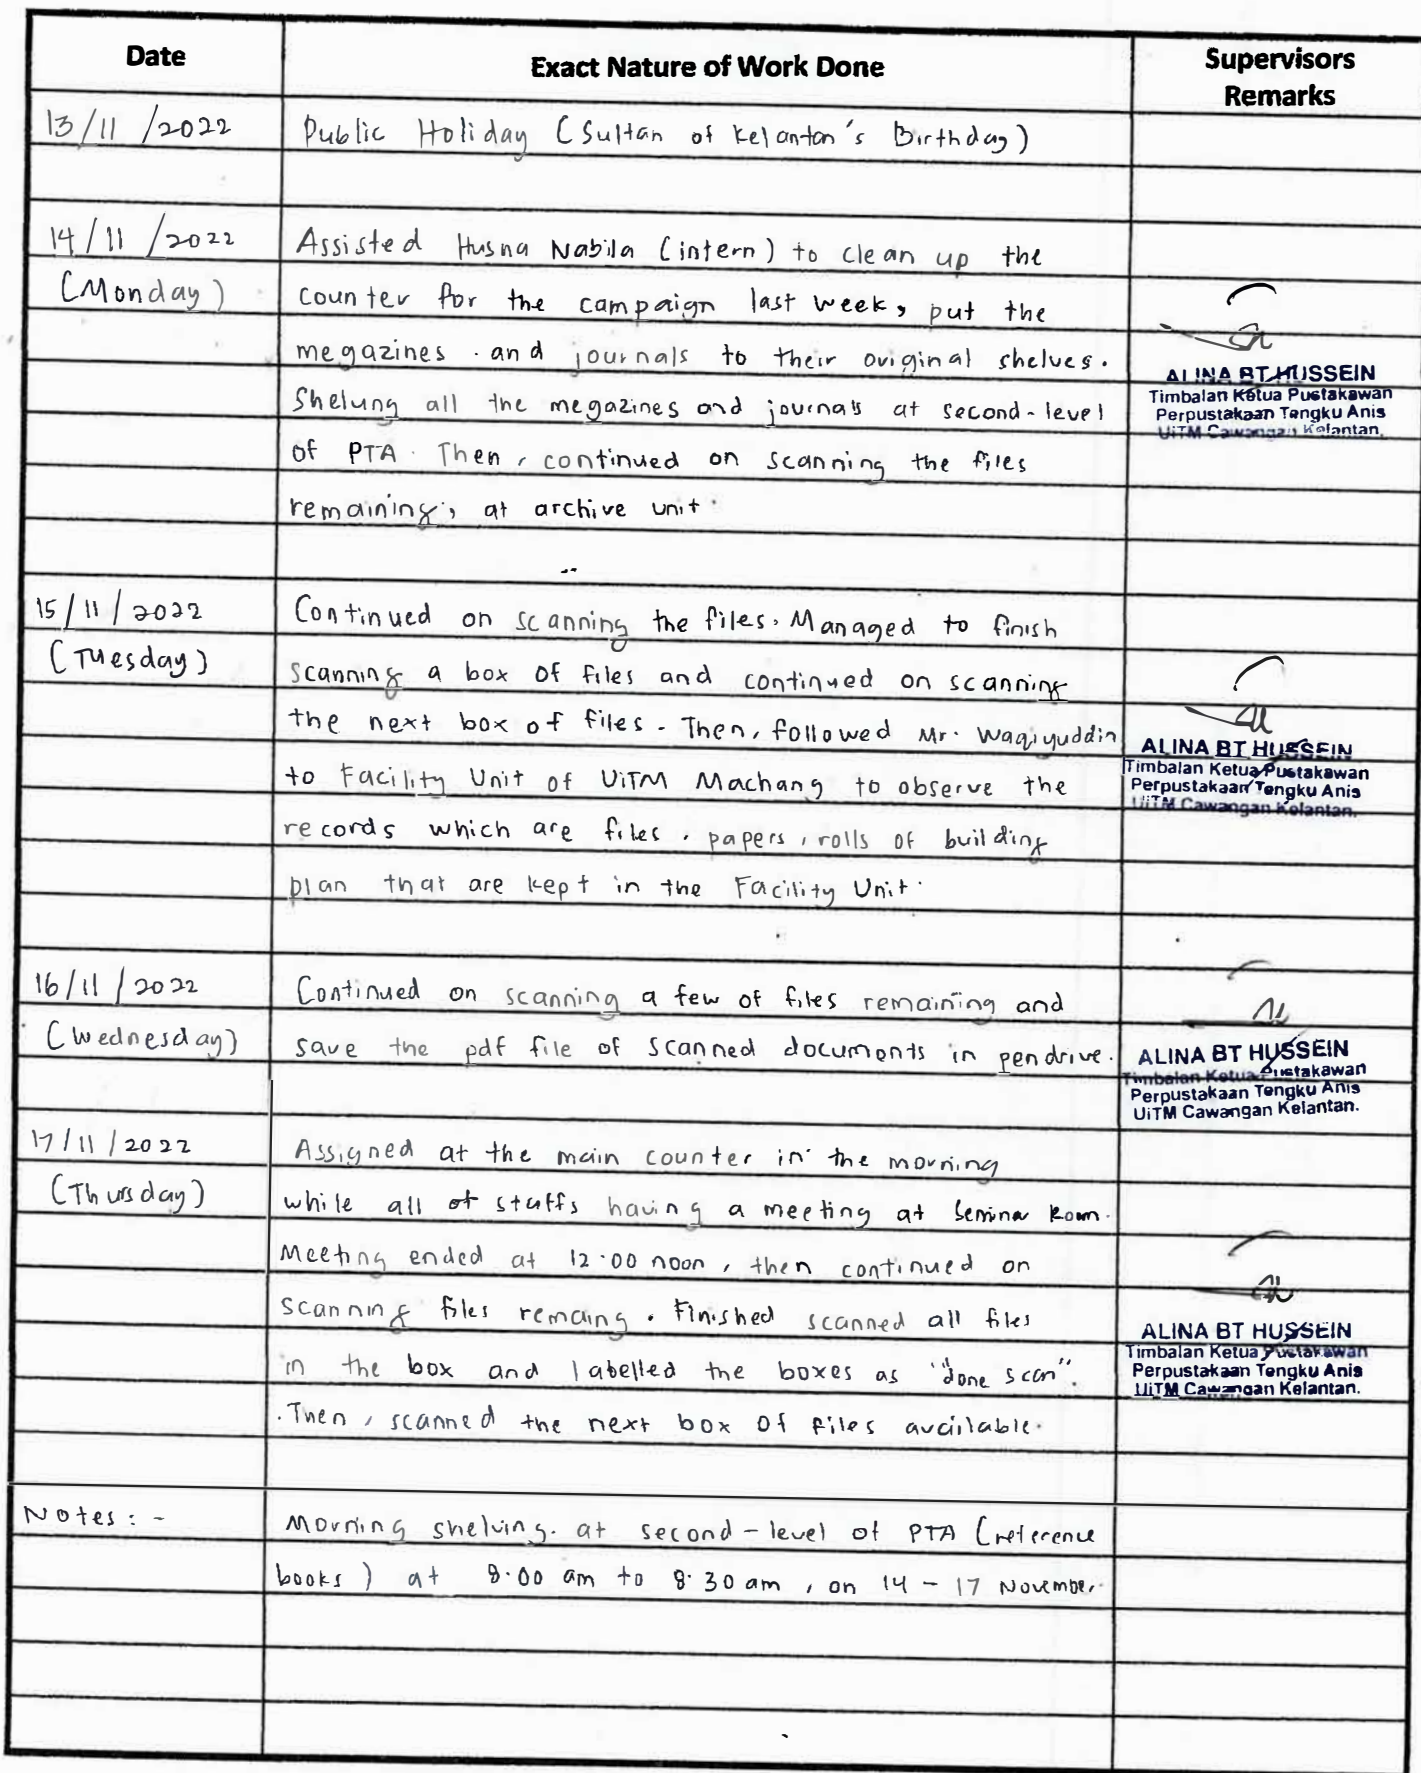 Date
Exact Nature of Work Done
Supervisors
Remarks
13/11/2022
Public Holiday (Sultan of Kelantan's Birthday)
14/11/2022
Assisted Husna Nabila (intern) to clean up the
(Monday)
counter for the campaign last week, put the
megazines and journals to their original shelves.
Shelung all the megazines and journals at second-level
of PTA. Then, continued on scanning the files
remaining, at archive unit.
ALINA BT HUSSEIN
Timbalan Ketua Pustakawan
Perpustakaan Tengku Anis
UiTM Cawangan Kelantan.
15/11/2022
Continued on scanning the files. Managed to finish
(Tuesday)
scanning a box of files and continued on scanning
the next box of files. Then, followed Mr. Waqiyuddin
to Facility Unit of UiTM Machang to observe the
records which are files, papers, rolls of building
plan that are kept in the Facility Unit.
ALINA BT HUSSEIN
Timbalan Ketua Pustakawan
Perpustakaan Tengku Anis
UiTM Cawangan Kelantan.
16/11/2022
Continued on scanning a few of files remaining and
(Wednesday)
save the pdf file of scanned documents in pendrive.
ALINA BT HUSSEIN
Timbalan Ketua Pustakawan
Perpustakaan Tengku Anis
UiTM Cawangan Kelantan.
17/11/2022
Assigned at the main counter in the morning
(Thursday)
while all of staffs having a meeting at Seminar Room.
Meeting ended at 12.00 noon, then continued on
scanning files remaing. Finished scanned all files
in the box and labelled the boxes as "done scan".
Then, scanned the next box of files available.
ALINA BT HUSSEIN
Timbalan Ketua Pustakawan
Perpustakaan Tengku Anis
UiTM Cawangan Kelantan.
Notes: -
Morning shelving. at second-level of PTA (reference
books) at 8.00 am to 8.30 am, on 14 - 17 November.